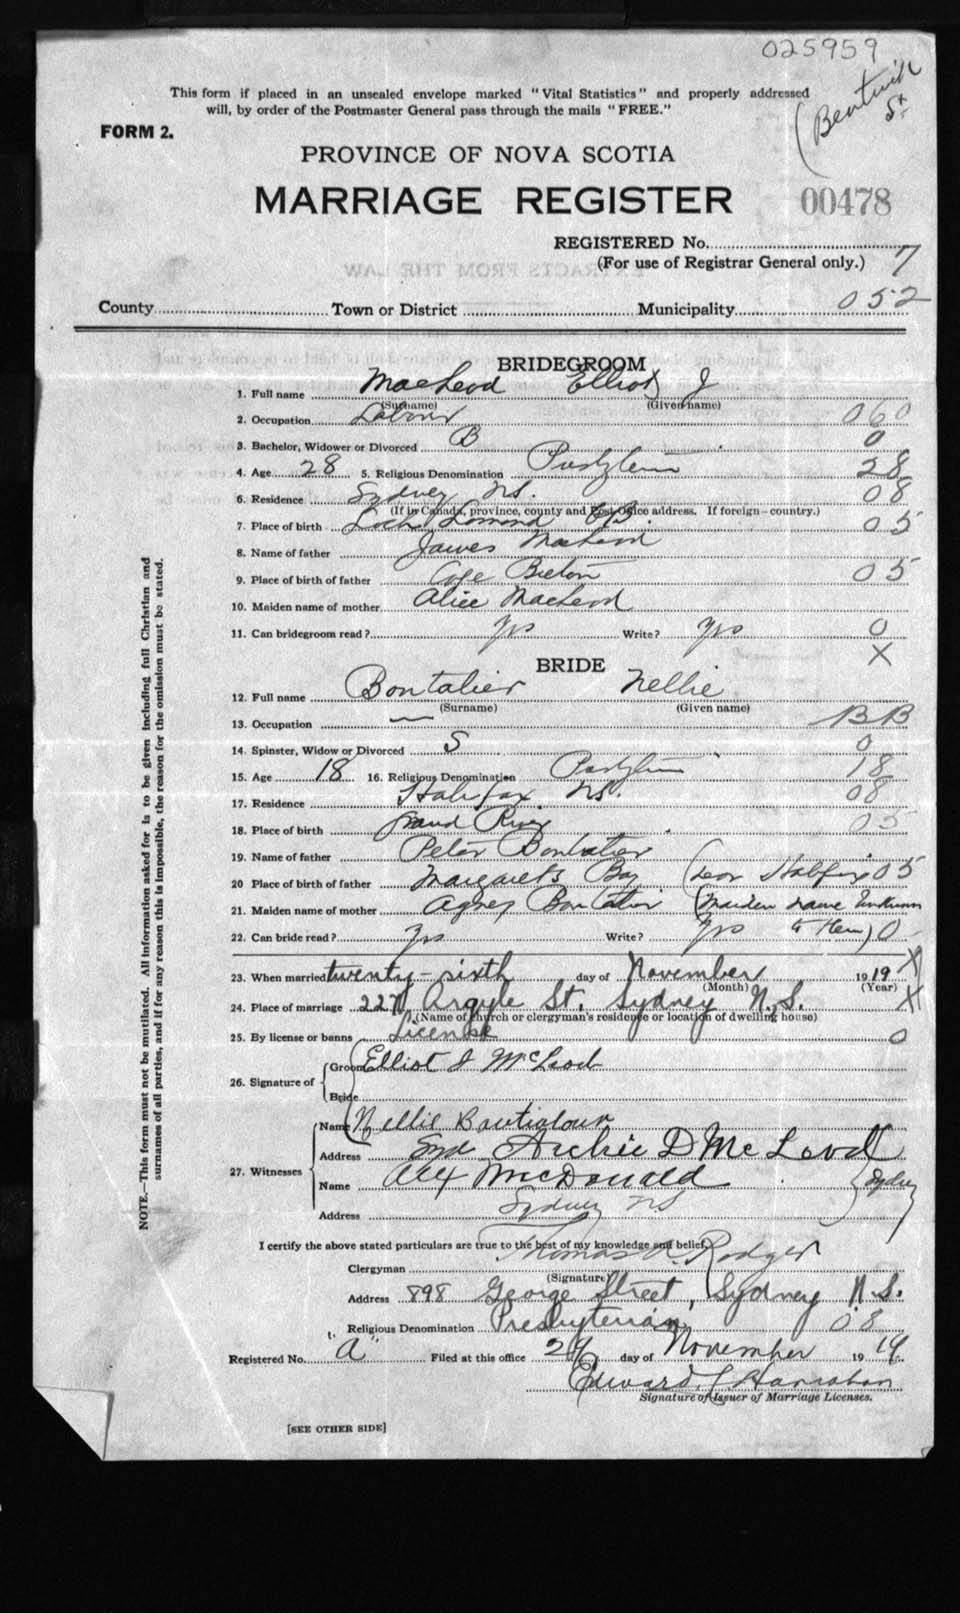 025959
This form if placed in an unsealed envelope marked "Vital Statistics" and properly addressed
will, by order of the Postmaster General pass through the mails "FREE."
FORM 2.
PROVINCE OF NOVA SCOTIA
MARRIAGE REGISTER 00478
REGISTERED No.
(For use of Registrar General only.) 7
County Town or District Municipality 052
BRIDEGROOM
1. Full name MacLeod Elliot J
(Surname) (Given name)
2. Occupation Labour 060
3. Bachelor, Widower or Divorced B 0
4. Age 28 5. Religious Denomination 28
6. Residence Sydney N.S. 08
(If in Canada, province, county and Post Office address. If foreign-country.)
7. Place of birth Loch Lomond C.B. 05
8. Name of father James MacLeod
9. Place of birth of father Cape Breton 05
10. Maiden name of mother Alice MacLeod
11. Can bridegroom read? Yes Write? Yes 0
X
BRIDE
12. Full name Bontalier Nellie
(Surname) (Given name)
13. Occupation — BB
14. Spinster, Widow or Divorced S 0
15. Age 18 16. Religious Denomination 18
17. Residence Halifax N.S. 08
18. Place of birth Grand River 05
19. Name of father Peter Bontalier
20 Place of birth of father Margarets Bay 05
21. Maiden name of mother Agnes Bontalier (Maiden name unknown
22. Can bride read? Yes Write? Yes to them) 0
23. When married twenty-sixth day of November 1919 X
(Month) (Year)
24. Place of marriage Argyle St, Sydney N.S. X
(Name of church or clergyman's residence or location of dwelling house)
25. By license or banns License 0
26. Signature of Groom Elliot J McLeod
Bride
Name Nellie
27. Witnesses Address Syd Archie D McLeod
Name Alex McDonald (Sydney)
Address Sydney NS
I certify the above stated particulars are true to the best of my knowledge and belief.
Clergyman Thomas A. Rodger
(Signature)
Address 898 George Street, Sydney N.S.
Religious Denomination Presbyterian 08
Registered No. "A" Filed at this office 29 day of November 1919
Edward J Hanrahan
Signature of Issuer of Marriage Licenses.
[SEE OTHER SIDE]
NOTE.—This form must not be mutilated. All information asked for is to be given including full Christian and
surnames of all parties, and if for any reason this is impossible, the reason for the omission must be stated.